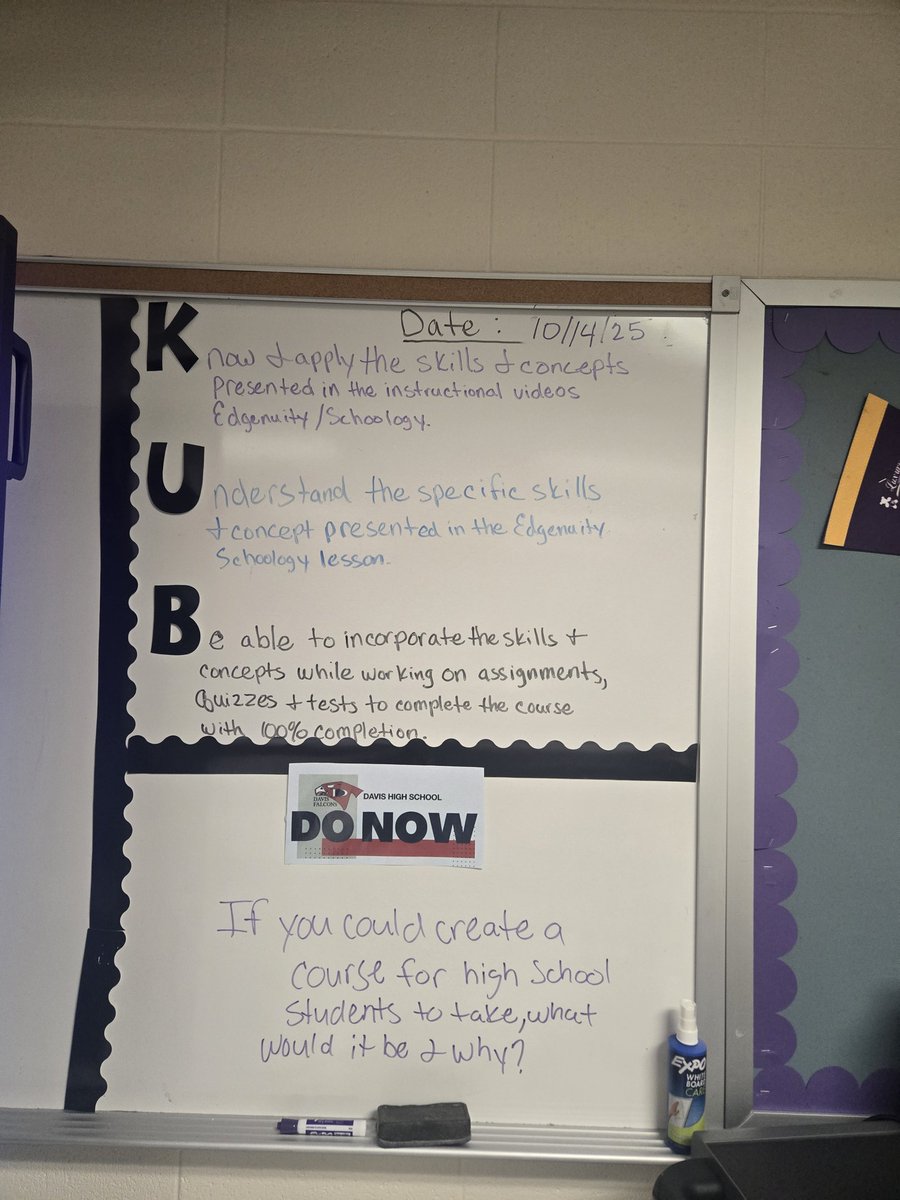 Date: 10/14/25
Know & apply the skills & concepts
presented in the instructional videos
Edgenuity/Schoology.
Understand the specific skills
& concept presented in the Edgenuity
Schoology lesson.
Be able to incorporate the skills &
concepts while working on assignments,
Quizzes & tests to complete the course
with 100% completion.
DAVIS FALCONS
DAVIS HIGH SCHOOL
DO NOW
If you could create a
course for high School
students to take, what
would it be & why?
EXPO
WHITE
BOARD
CARE
EXPO